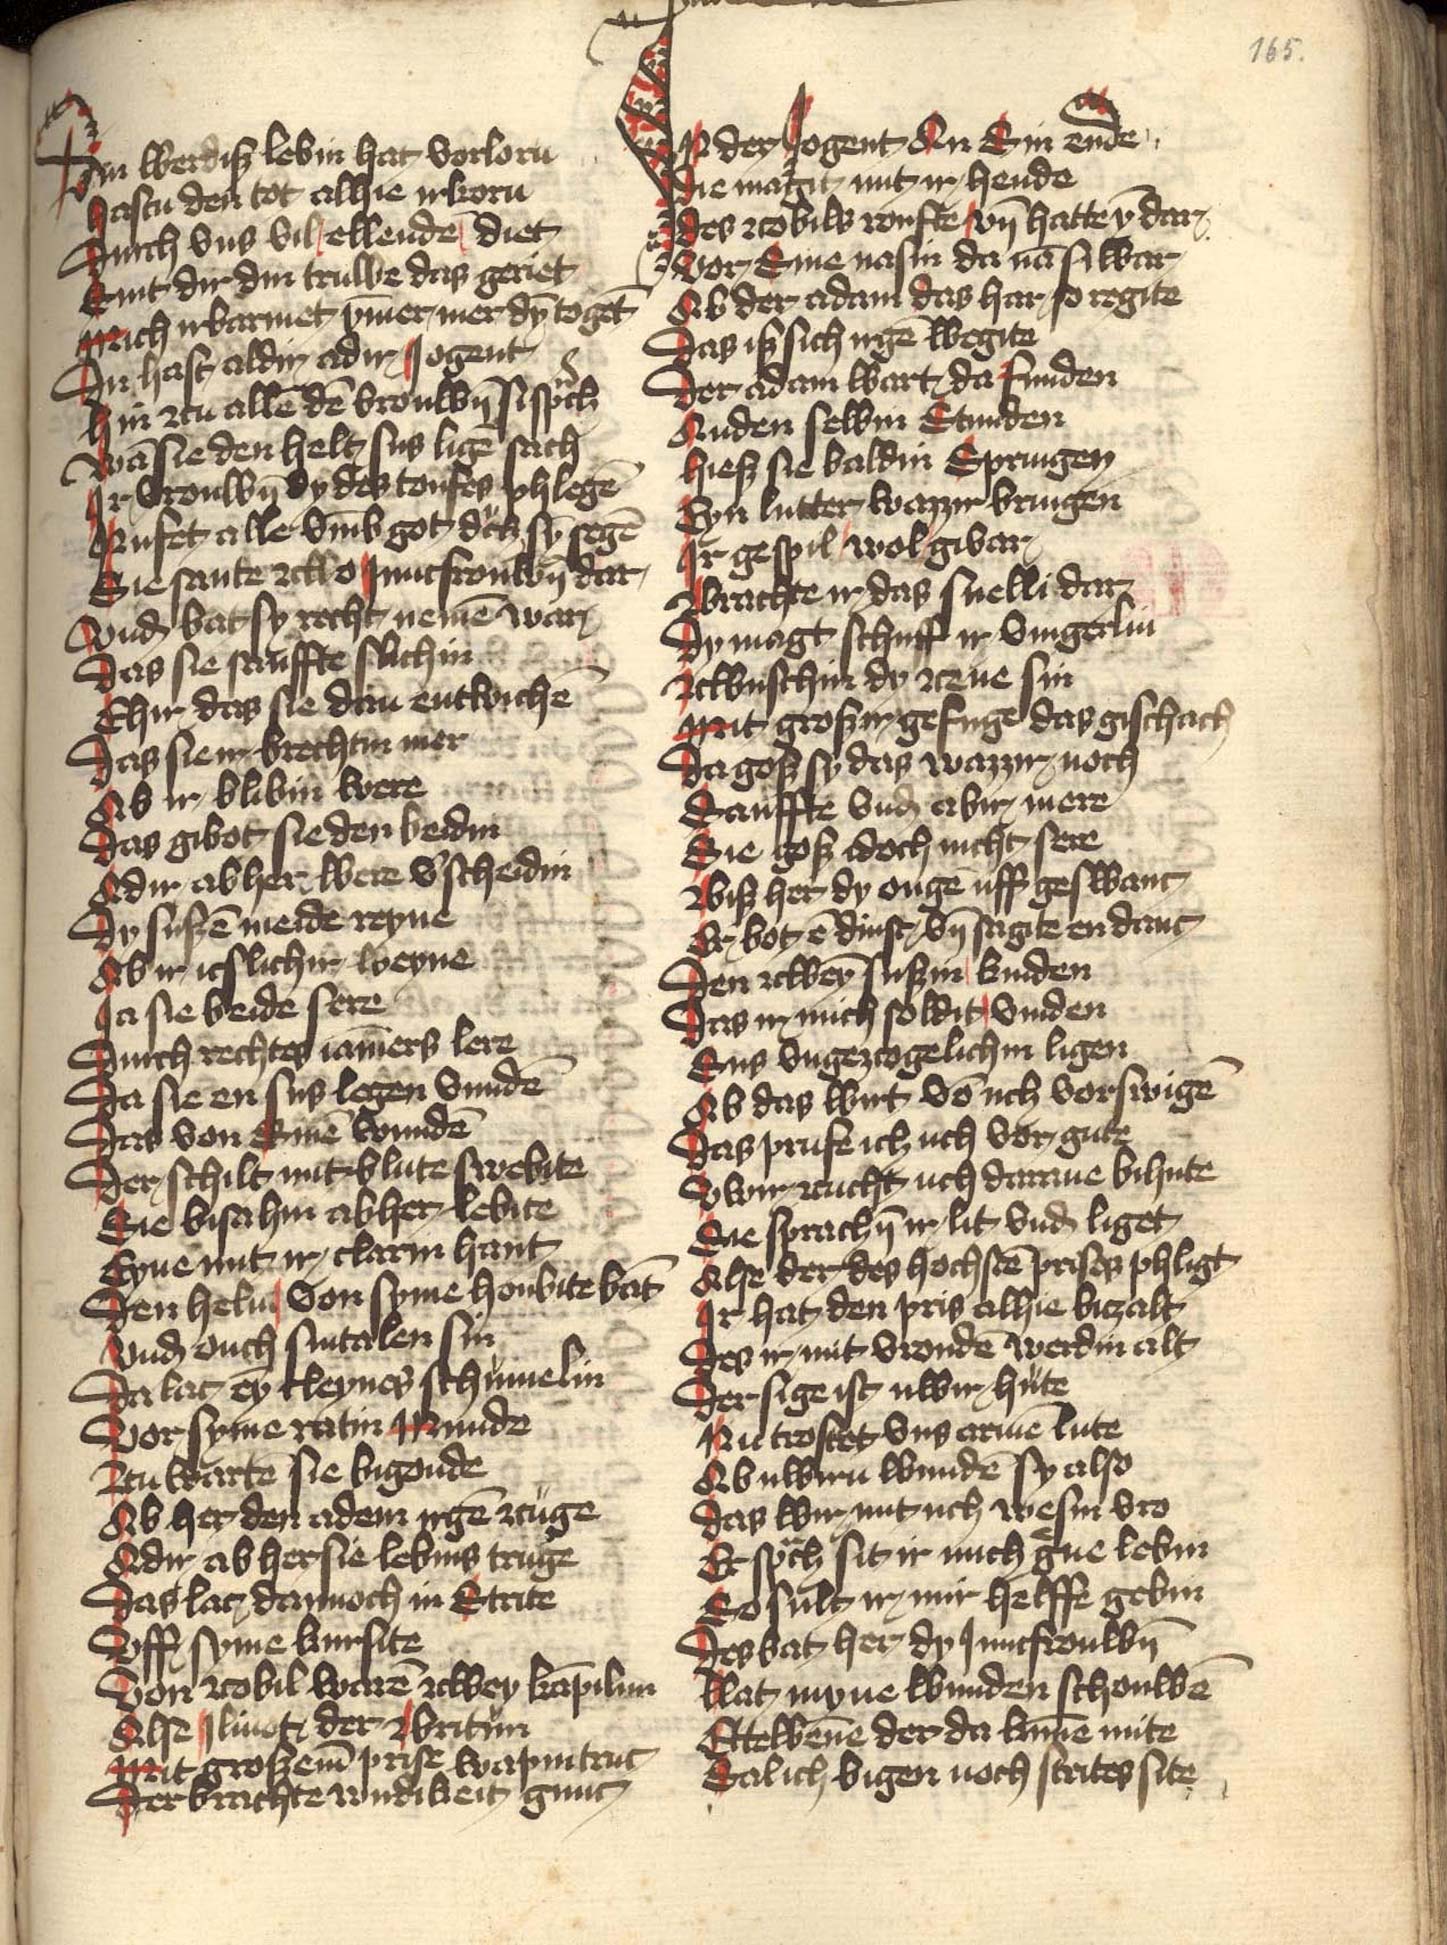 165.
Din werdiß lebin hat vorlorn
hastu den tot alhie irkorn
Durch vns vil ellende diet
Sint dir din truwe das geriet
Mich irbarmet ym̄er mer dȳ toget
Du hast aldir adir Jogent
Hin zcu allē dē vrouwȳ si spch
Wā sie den helt sus ligē sach
Ir vrouwȳ dy des toufes phlegē
Rufet alle vm̄b got dorch sȳ segē
Sie sante zcwo Juncfrouwȳ dar
Vnd bat sy recht nemē war
Das sie sauffte slichin
Ehir das sie dan entwichē
Das sie ir brechtin mer
Ab ir blibin were
Das gibot sie den beidin
Adir ab her were v'scheidin
Dy sußē meide reyne
Ab ir icslichir weyne
Ja sie beide sere
Durch rechtes iamers lere
Da sie en sus legen vundē
Das von sinē wundē
Der schilt mit blute swebite
Sie bisahin ab her lebite
Eyne mit ir clarin hant
Den helm von syme houbite bāt
Vnd ouch sintalen sin
Da lac ey cleynes schumelin
Vor syme rotin Munde
Zcu warte sie bigonde
Ab her den adem irgē zcuge
Adir ab her sie lebins truge
Das lac dannoch in Strite
Vff syme kursite
Von zcobil warē zcwey kāpilun
Alse Jlinot der Britun
Mit großem prise wapin truc
Der brachte wirdikeit gnuc
In der Jogent An Sin ende
Die magit mit ir hende
des zcobils roufte vn̄ hatte ȳ dar
Vor Sine nasin da nā si war
Ab der adam das har so regite
Das iß sich irgē wegite
Der adam wart da funden
An den selbin Stunden
hieß sie baldin Springen
Eyn lutter wazzir bringen
Ir gespil wol givar
Brachte ir das snelli dar
Dy magt schuff ir vingerlin
Zcwuschin dy zcene sin
Mit großir gefuge das gischach
Da goß sy das wazzir noch
Sauffte vnd abir mere
Sie goß idoch nicht sere
Biß her dy ougē uff geswanc
Er bot ē dinst vn̄ sagite en danc
Den zcwey sußin kinden
Das ir mich soldit vinden
Sus vngezcogelichin ligen
Ab das wirt vō uch vorswigē
Das prufe ich uch vor gute
Vwir zcucht uch daraue bihute
Sie sprachȳ ir lit vnd liget
Alse der des hochstē prises phligt
Ir hat den pris alhie bizalt
Des ir mit vroudē werdin alt
Der sige ist uwir hute
Nu trostet vns armē lute
Ab uwirn wundē sy also
Das wir mit uch wesin vro
Er spch sit ir mich gne lebin
So sult ir mir helffe gebin
Des bat her dy Juncfrouwȳ
Lat myne wunden schouwē
Ettewēne der da kūne mite
Sal ich bigen noch strites site